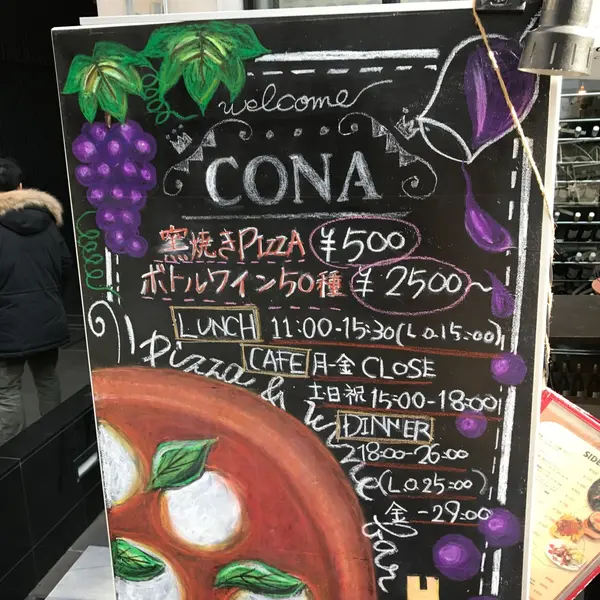 welcome
CONA
窯焼きPIZZA ¥500
ボトルワイン50種 ¥2500~
LUNCH 11:00-15:30(L.O.15:00)
CAFE 月-金 CLOSE
土日祝 15:00-18:00
DINNER
18:00-26:00
(L.O.25:00)
金-29:00
Pizza & Wine Bar
SIDE